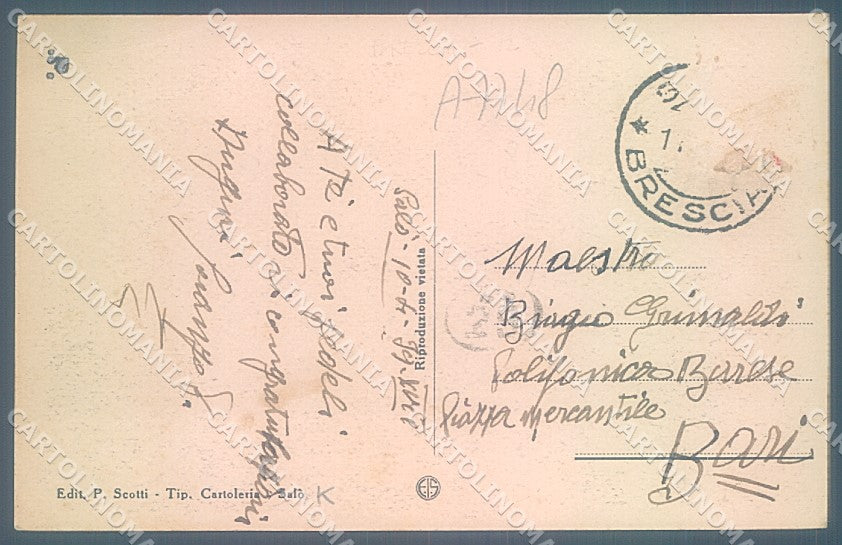 A-7748
10
* 1.
BRESCIA
Salò - 10-4-39.XVII
A Te e tuoi fedeli
collaboratori congratulazioni
Auguri
Maestro
Biagio Grimaldi
Polifonica Barese
Piazza Mercantile
Bari
Riproduzione vietata
Edit. P. Scotti - Tip. Cartoleria - Salò
K
EIS
CARTOLINOMANIA